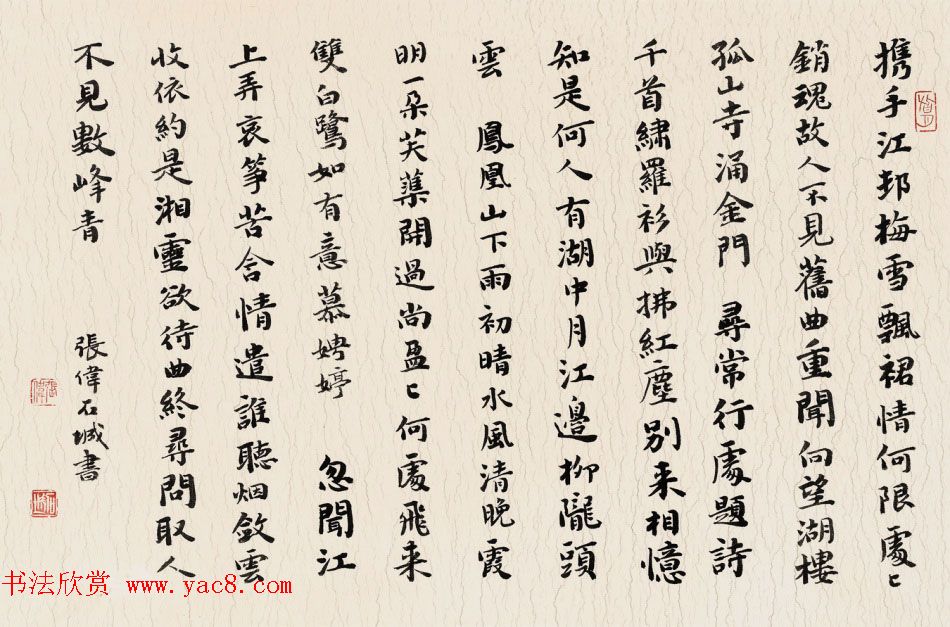 携手江邨梅雪飄裙情何限處〻
銷魂故人不見舊曲重聞向望湖樓
孤山寺涌金門 尋常行處題詩
千首繡羅衫與拂紅塵別来相憶
知是何人有湖中月江邊柳隴頭
雲 鳳凰山下雨初晴水風清晚霞
明一朵芙蕖開過尚盈〻何處飛来
雙白鷺如有意慕娉婷 忽聞江
上弄哀箏苦含情遣誰聽烟斂雲
收依約是湘靈欲待曲終尋問取人
不見數峰青
張偉石城書
书法欣赏 www.yac8.com